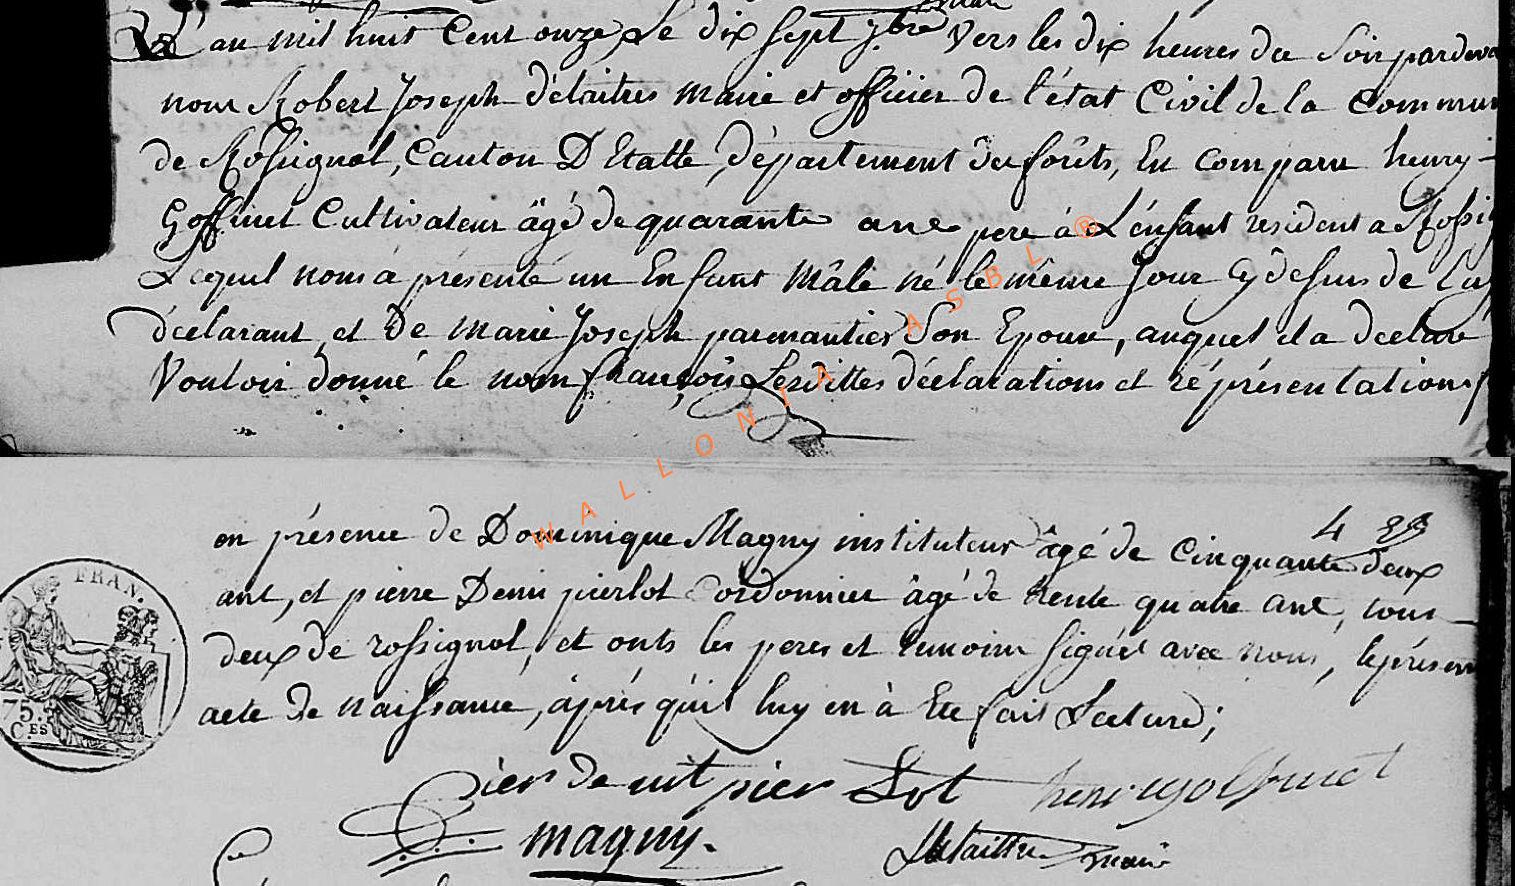 L'an mil huit Cent onze, Le dix sept 7bre Vers les dix heures du Soir pardeva
nous Robert Joseph délaitres maire et officier de l'état Civil de la Commun
de Rossignol, Canton D'Etalle, département des forêts, En comparu henry-
Goffinet Cultivateur âgé de quarante ans pere à L'énfant resident a Rossig
Lequel nous à présenté un Enfant Mâle né le même Jour Cy dessus de Luy
déclarant, et de Marie Joseph parmantier Son Epouse, auquel il a declaré
Vouloir donné le nom françois Lesdittes déclarations et réprésentations f
en présence de Dominique Magny instituteur âgé de Cinquante deux
ans, et pierre Denis pierlot Cordonnier âgé de trente quatre ans, tous
deux de rossignol, et onts les peres et temoins Signés avec nous, le présen
acte de naissance, áprés qu'il luy en à Ete fait Lecture;
pier de nit pier Lot henri goffinet
magny. Delaittre maire
FRAN.
75.
CES
WALLONIA ASBL ®